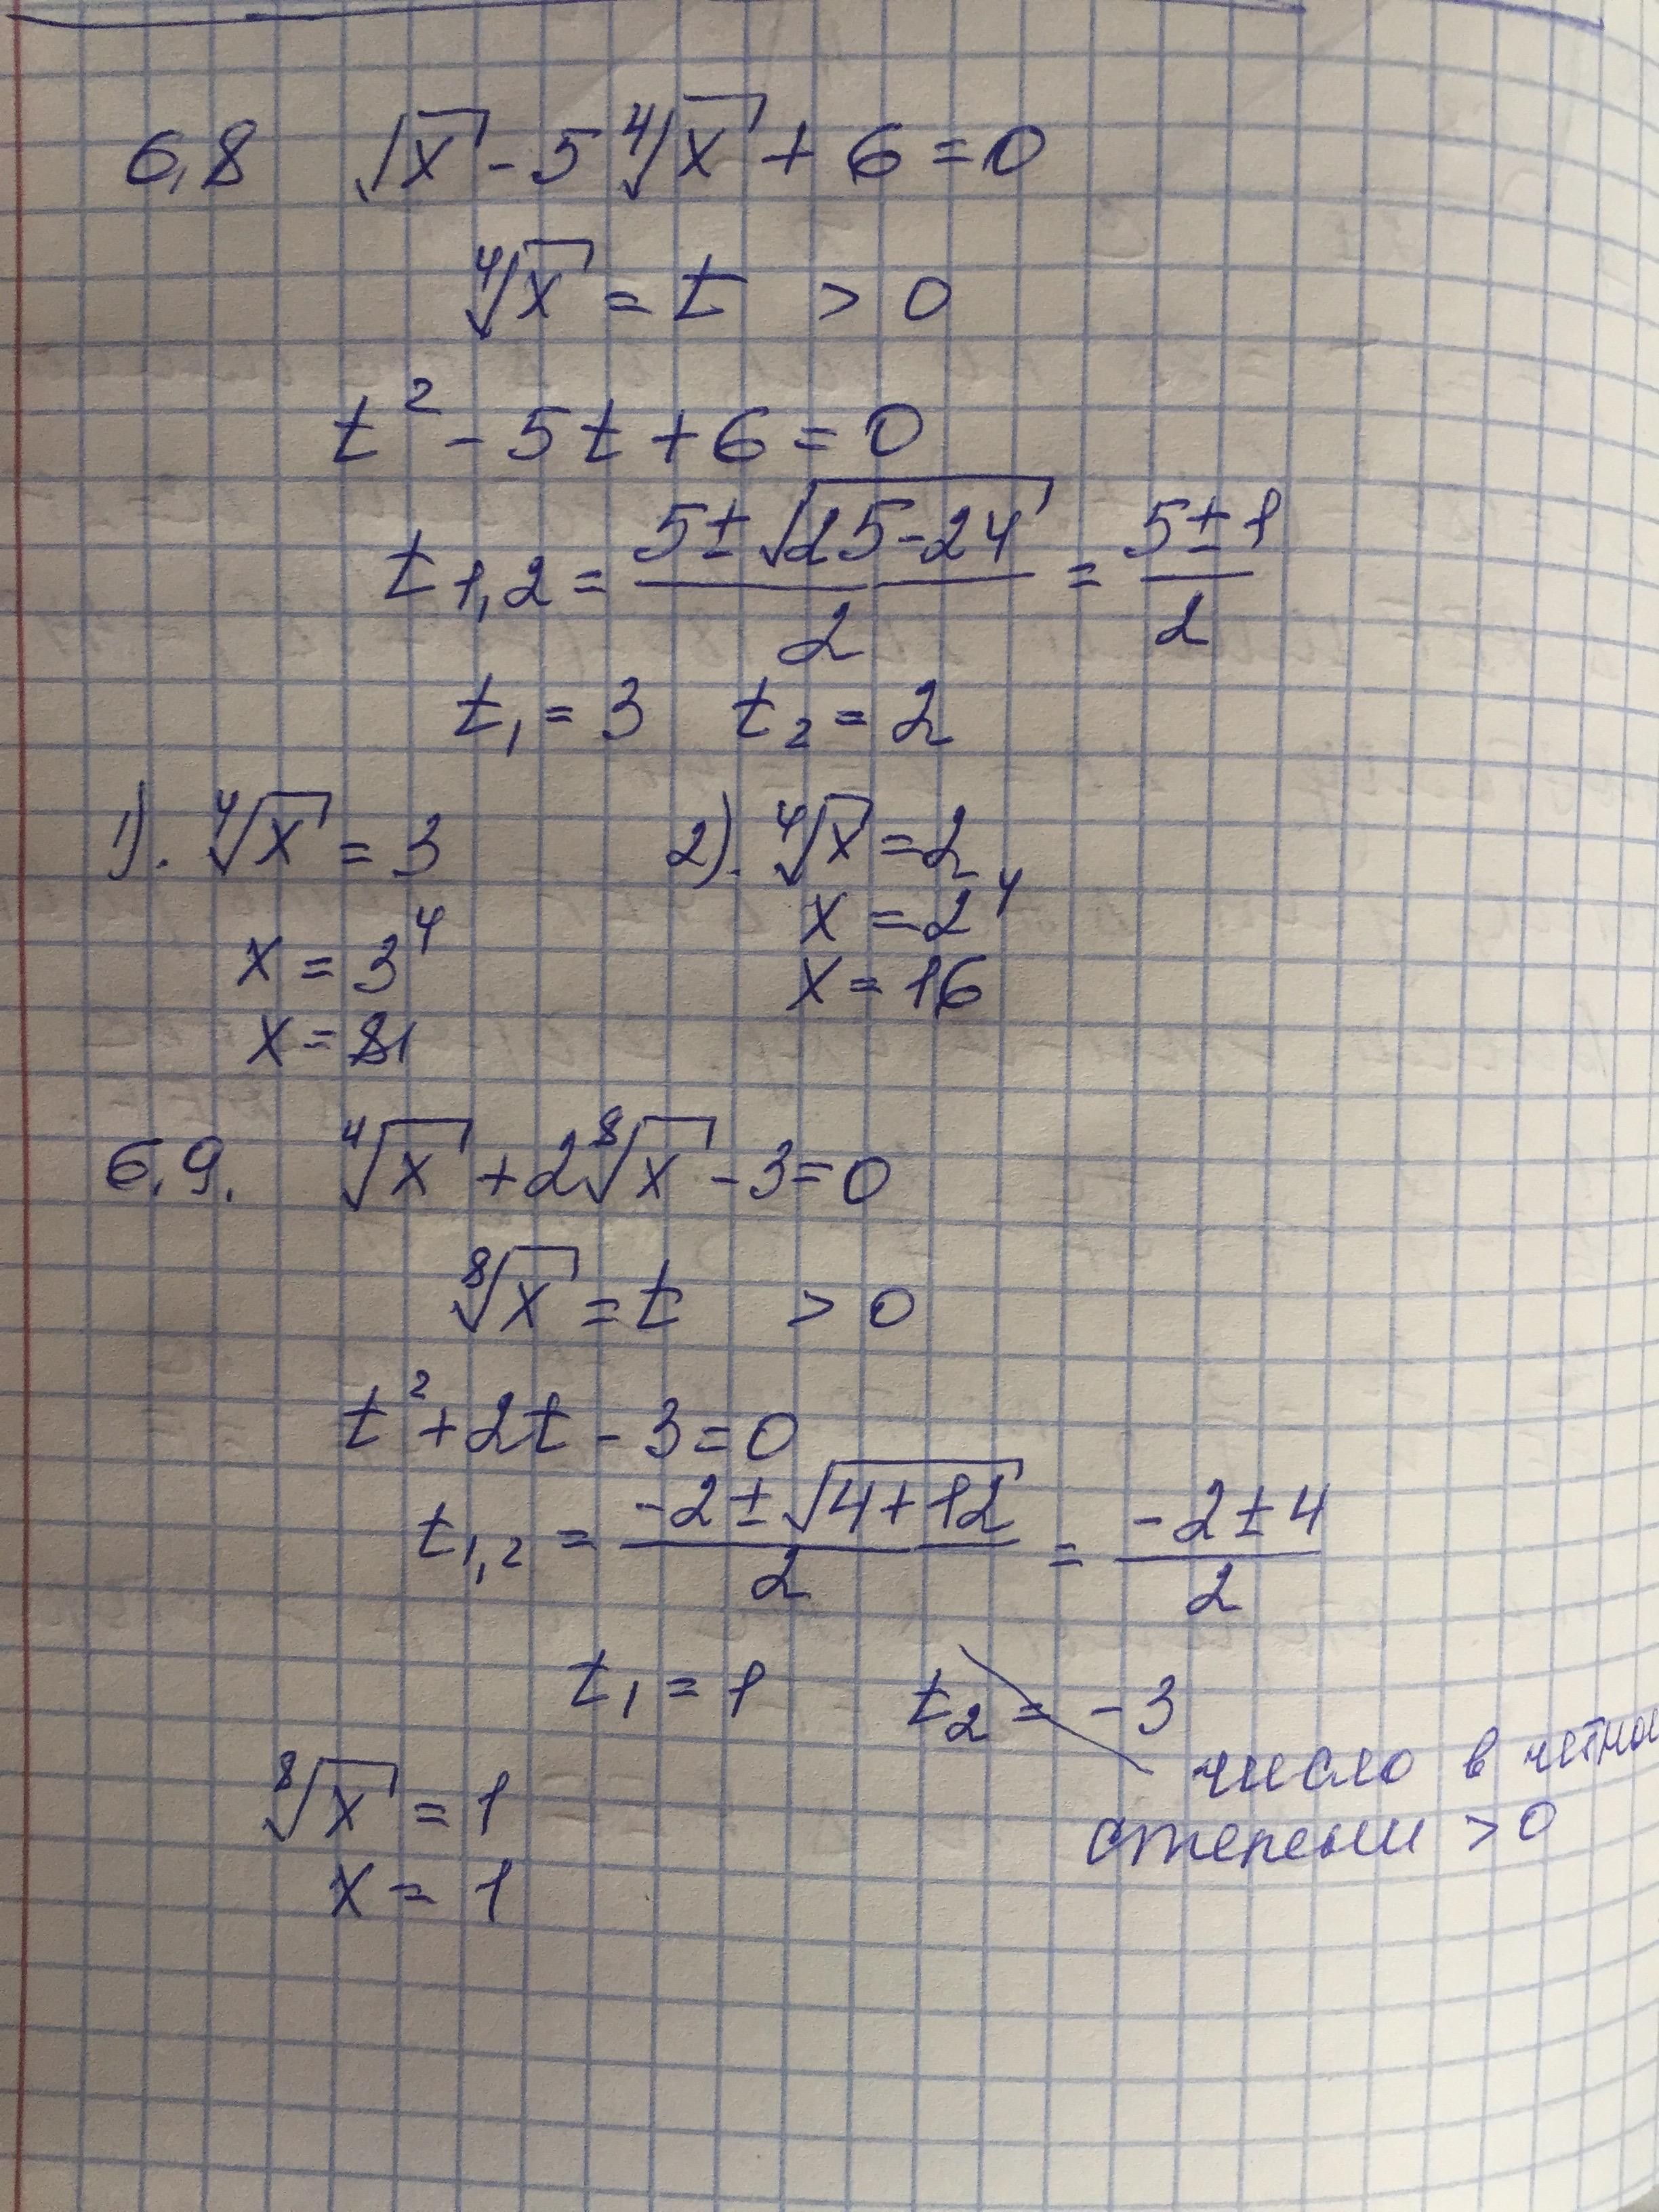 6,8 √x - 5 ⁴√x + 6 = 0
⁴√x = t > 0
t² - 5t + 6 = 0
t₁,₂ = (5 ± √(25 - 24))/2 = (5 ± 1)/2
t₁ = 3 t₂ = 2
1). ⁴√x = 3 2). ⁴√x = 2
x = 3⁴ x = 2⁴
x = 81 x = 16
6.9. ⁴√x + 2 ⁸√x - 3 = 0
⁸√x = t > 0
t² + 2t - 3 = 0
t₁,₂ = (-2 ± √(4 + 12))/2 = (-2 ± 4)/2
t₁ = 1 t₂ = -3
число в четной
⁸√x = 1 степени > 0
x = 1